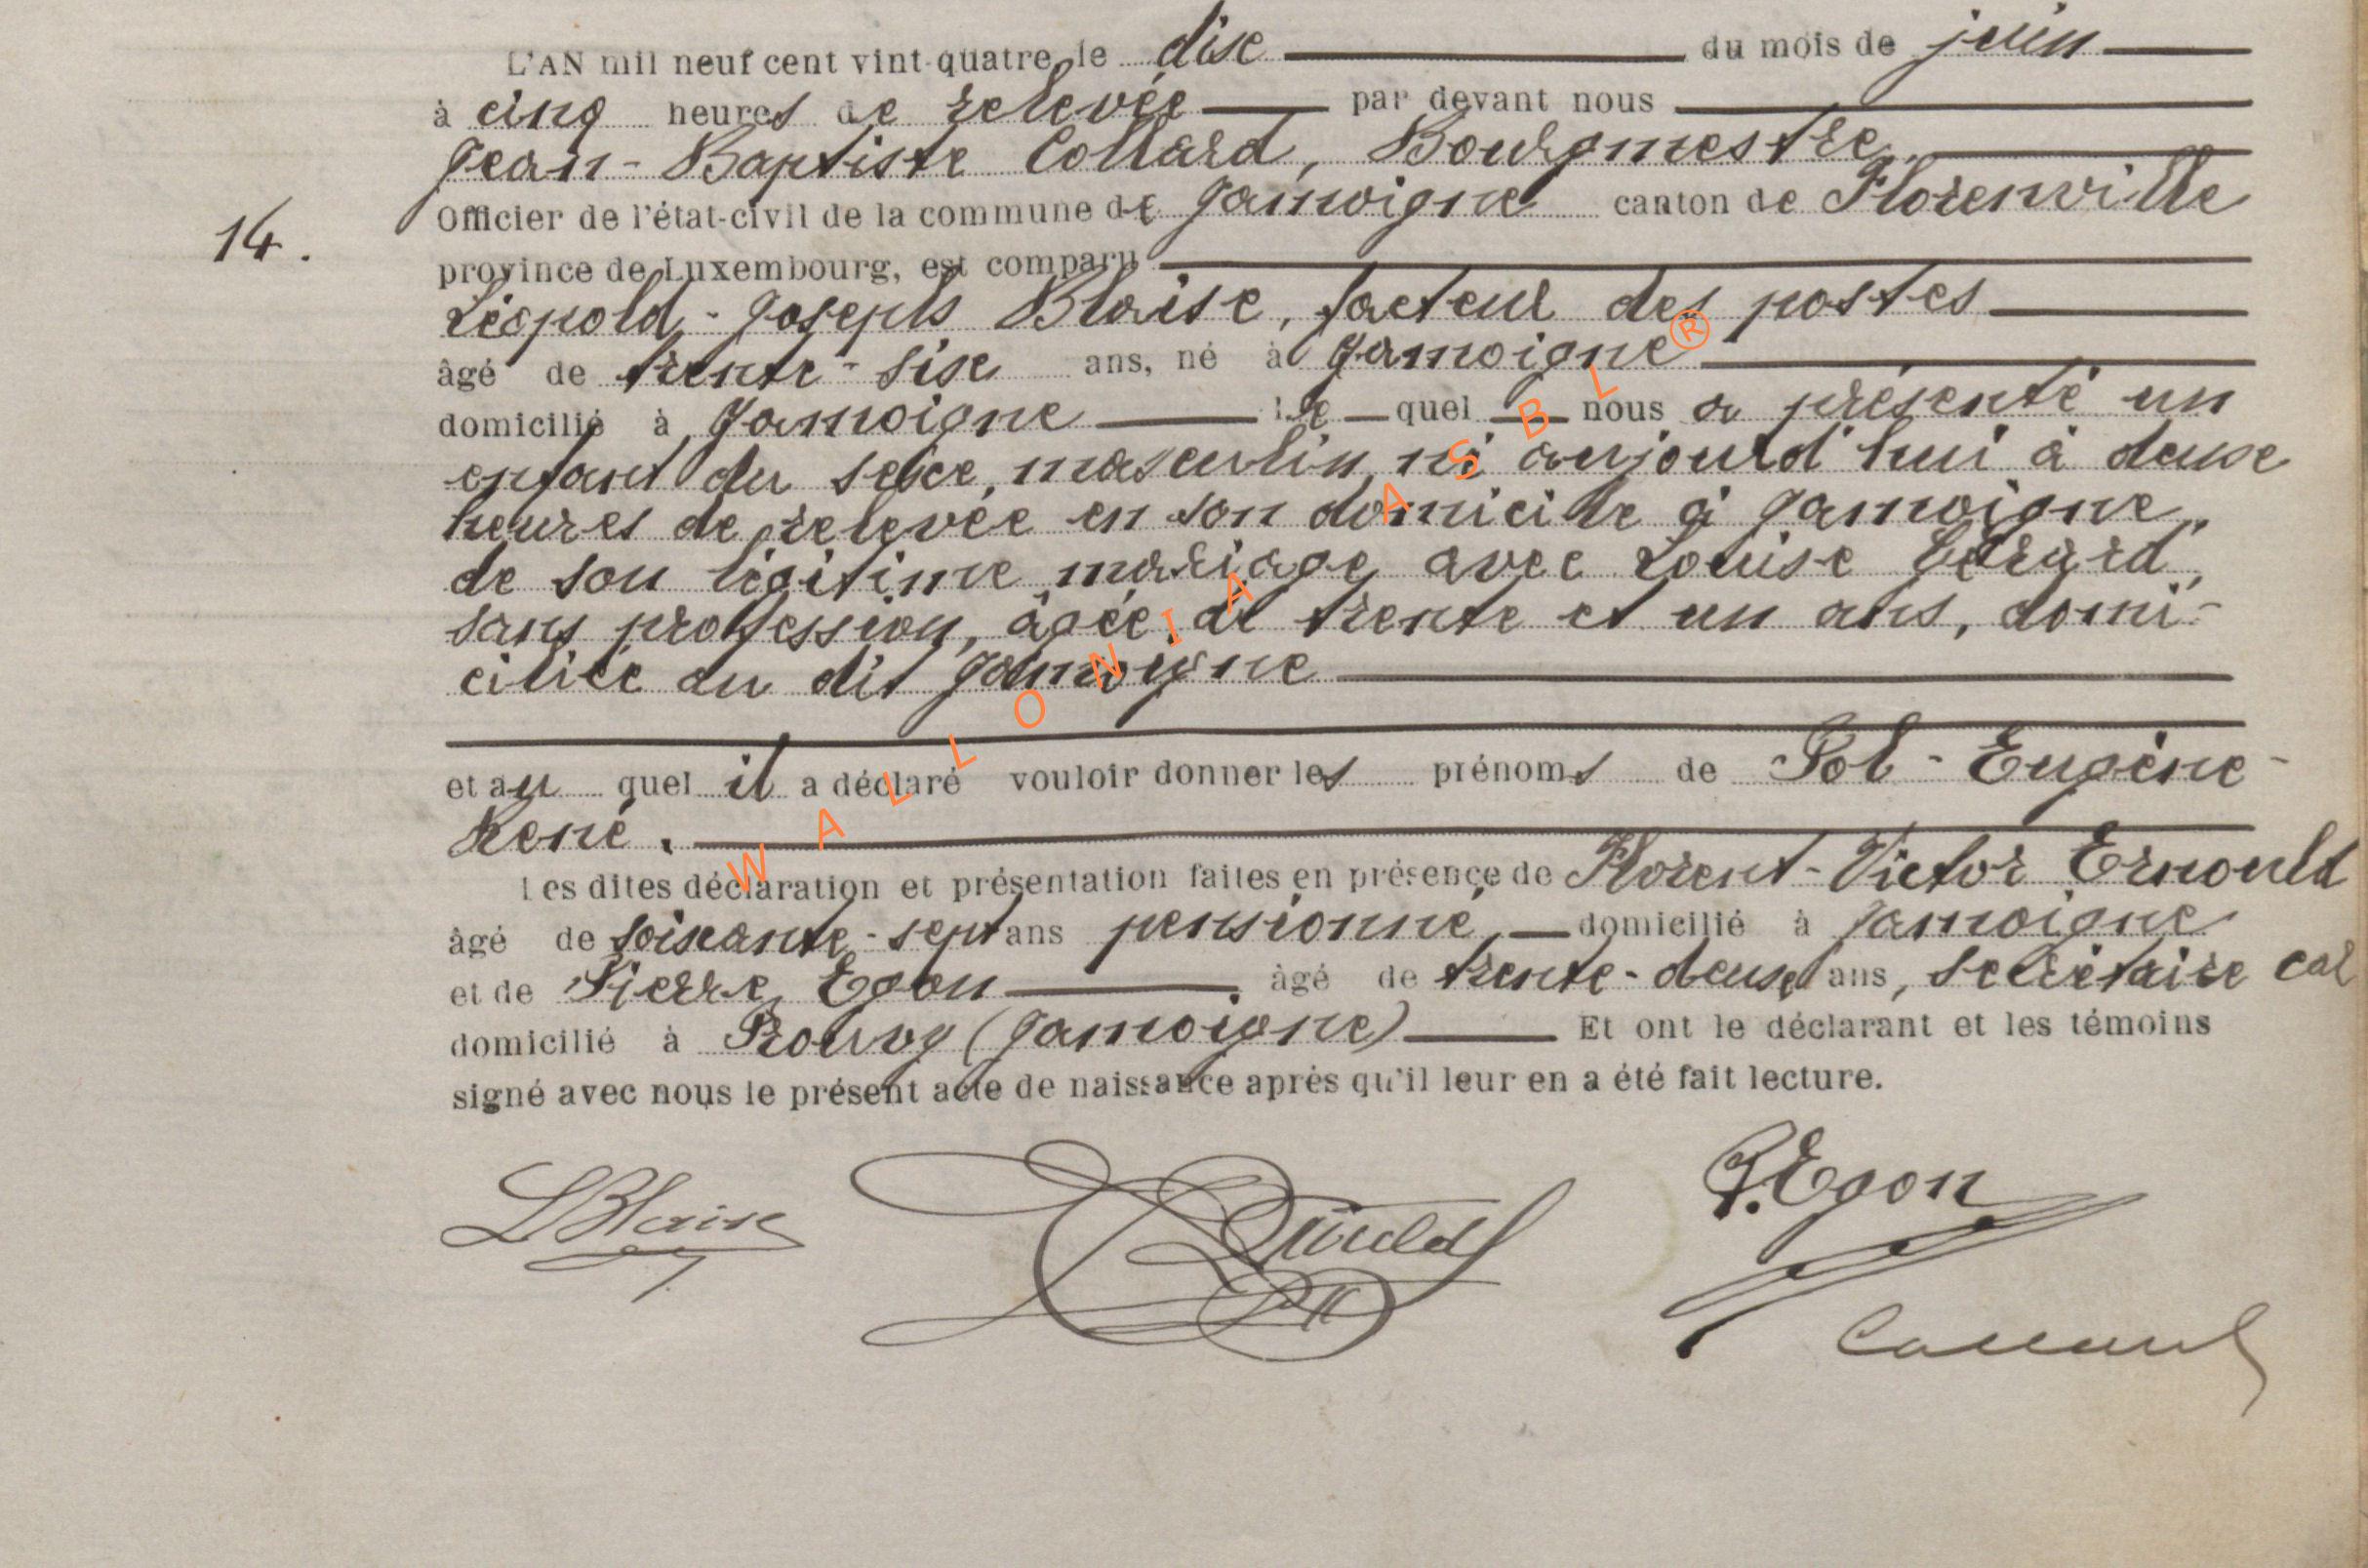 L'AN mil neuf cent vint-quatre, le dix du mois de juin
à cinq heures de relevée par devant nous
Jean-Baptiste Collard, Bourgmestre,
Officier de l'état-civil de la commune de Jamoigne canton de Florenville
14.
province de Luxembourg, est comparu
Léopold-Joseph Blaise, facteur des postes
âgé de trente-six ans, né à Jamoigne
domicilié à Jamoigne le quel nous a présenté un
enfant du sexe masculin, né aujourd'hui à deux
heures de relevée en son domicile à Jamoigne,
de son légitime mariage avec Louise Gérard,
sans profession, âgée de trente et un ans, domi-
ciliée au dit Jamoigne
et au quel il a déclaré vouloir donner les prénoms de Pol-Eugène-
René.
Les dites déclaration et présentation faites en présence de Florent-Victor Ernould
âgé de soixante-sept ans pensionné, domicilié à Jamoigne
et de Pierre Egon âgé de trente-deux ans, secrétaire cal
domicilié à Prouvy (Jamoigne) Et ont le déclarant et les témoins
signé avec nous le présent acte de naissance après qu'il leur en a été fait lecture.
LBlaise
Ernould
P. Egon
Collard
WALLONIA ASBL ®